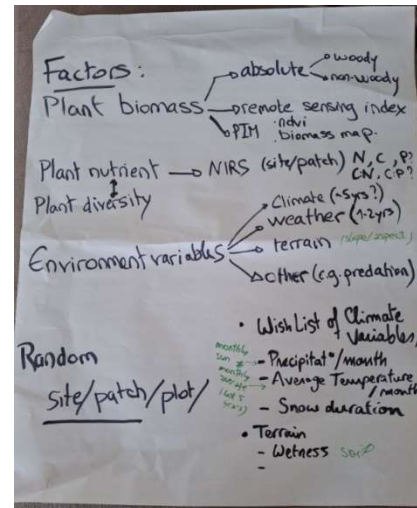 Factors:
Plant biomass
absolute
woody
non-woody
remote sensing index
ndvi
PIM biomass map.
Plant nutrient → NIRS (site/patch) N, C, P?
C:N, C:P?
Plant diversity
Environment variables
Climate (~5yrs?)
weather (1-2yrs)
terrain (slope/aspect)
other (e.g. predation)
Random
site/patch/plot/
• Wish List of Climate
Variables,
- Precipitat°/month
- Average Temperature
/month
- Snow duration
monthly
monthly
• Terrain
- Wetness
-